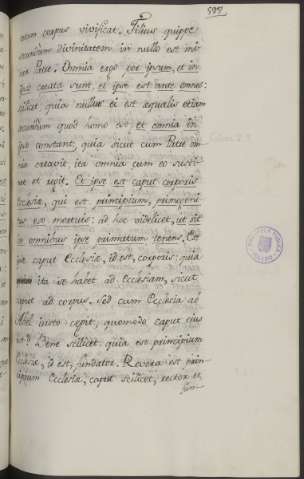 595
totum corpus vivificat. Filius quippe
secundum divinitatem in nullo est mi-
nor Patre. Omnia ergo per ipsum, et in
ipso creata sunt, et ipse est ante omnes:
scilicet quia nullus ei est equalis etiam
secundum quod homo est et omnia in
ipso constant, quia sicut cum Patre om-
nia creavit, ita omnia cum eo
et regit. Et ipse est caput corporis
Ecclesia, qui est principium, primogeni-
tus ex mortuis: ad hoc videlicet, ut sit
in omnibus ipse primatum tenens. Est
caput Ecclesia, id est, corporis: quia
ita se habet ad Ecclesiam, sicut
caput ad corpus. Sed cum Ecclesia ab
Abel justo cepit, quomodo caput ejus
est? Bene scilicet, quia est principium
Ecclesia, id est, fundator. Revera est prin-
cipium Ecclesia, caput scilicet, rector et